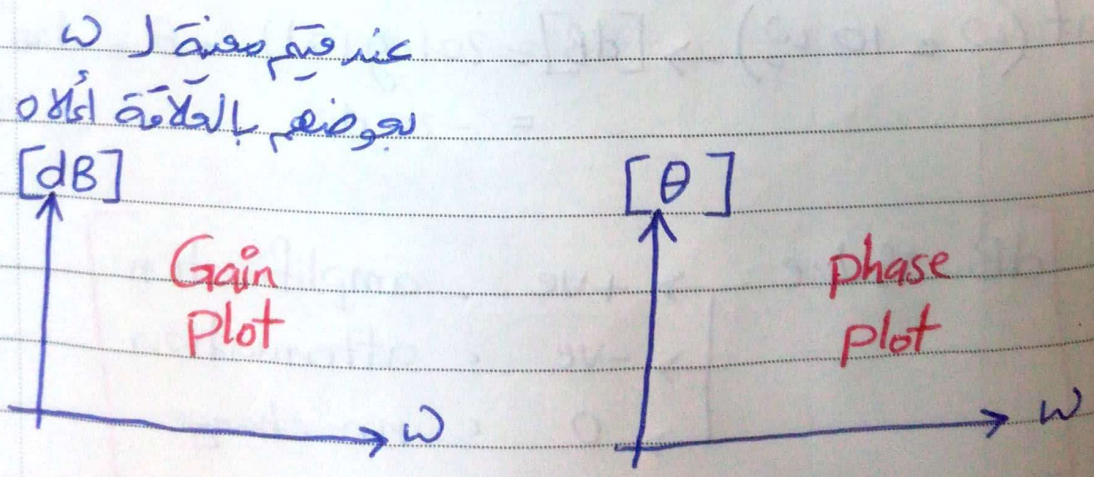 عند قيم معينة لـ ω
بعوضهم بالعلاقة أعلاه
[dB]
Gain
plot
ω
[θ]
phase
plot
ω